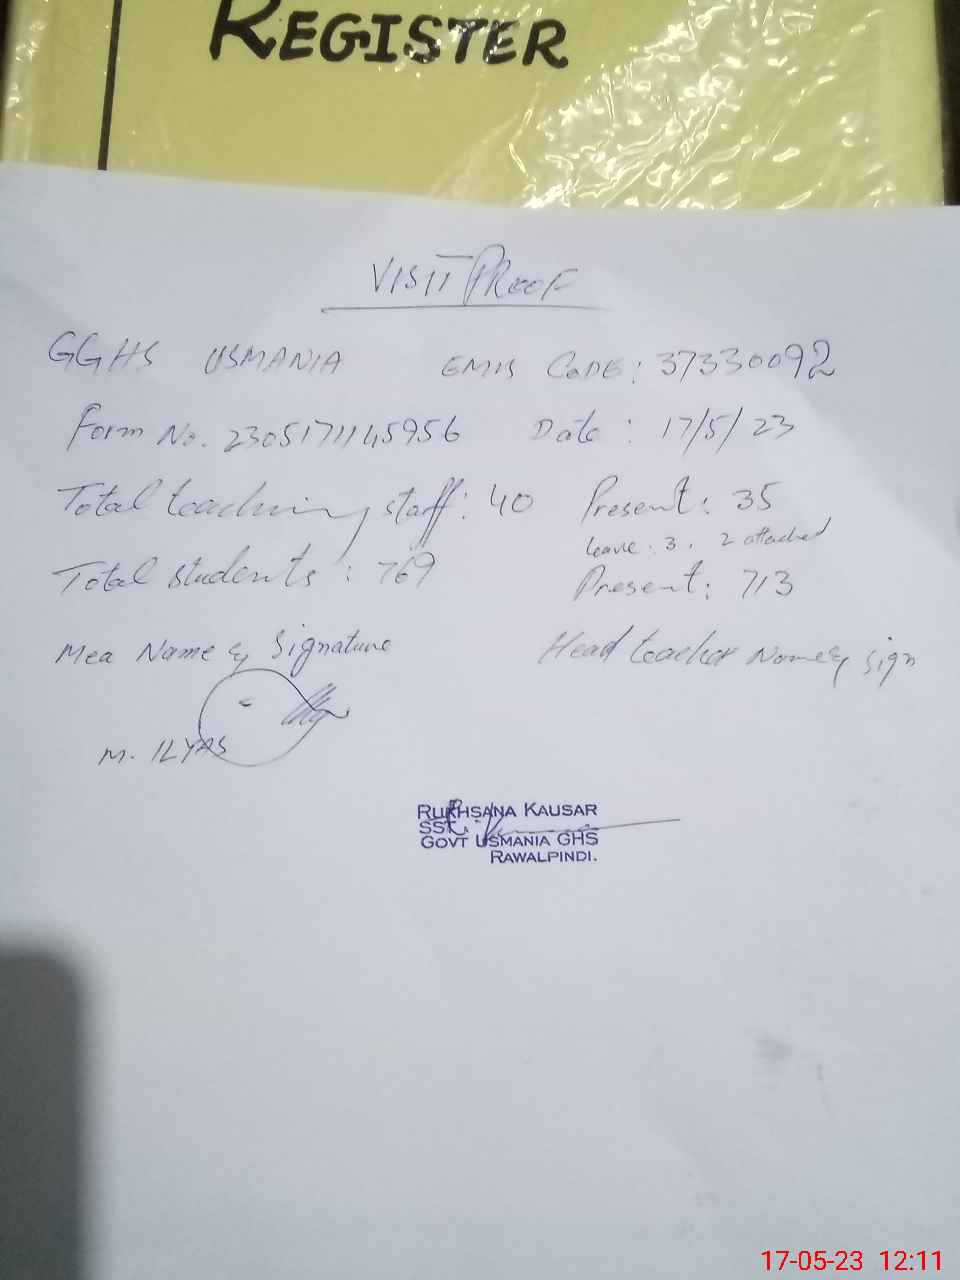 REGISTER
VISIT PROOF
GGHS USMANIA EMIS CODE: 37330092
Form No. 2305171145956 Date: 17/5/23
Total teaching staff: 40 Present: 35
leave: 3, 2 attached
Total students: 769 Present: 713
Mea Name & Signature Head teacher Name & Sign
M. ILYAS
RUKHSANA KAUSAR
SST
GOVT USMANIA GHS
RAWALPINDI.
17-05-23 12:11